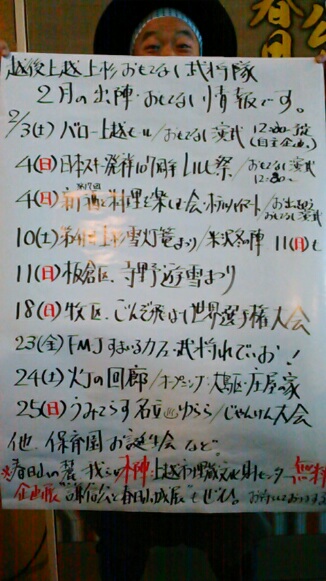 越後上越上杉おもてなし武将隊
2月の出陣・おもてなし情報です。
2/3(土) バロー上越モール/おもてなし演武 12:30〜
4(日) 日本スキー発祥107周年レルヒ祭/おもてなし演武 12:30〜
4(日) 新酒と料理を楽しむ会・ホテルハイマート/お出迎え おもてなし演武
10(土) 上杉雪灯篭まつり/ 11(日)も
11(日) 板倉区 寺野遊雪まつり
18(日) 牧区 ごんぞ飛ばし世界選手権大会
23(金) FMJ すまいるカフェ・武将れでぃお!
24(土) 灯の回廊/オープニング:大駄・庄屋の家
25(日) うみてらす名立 ゆらら/じゃんけん大会
他、保育園お誕生会など。
※春日山の麓 我らが 上越市埋蔵文化財センター 無料
企画展 謙信公と春日山城展もぜひ。